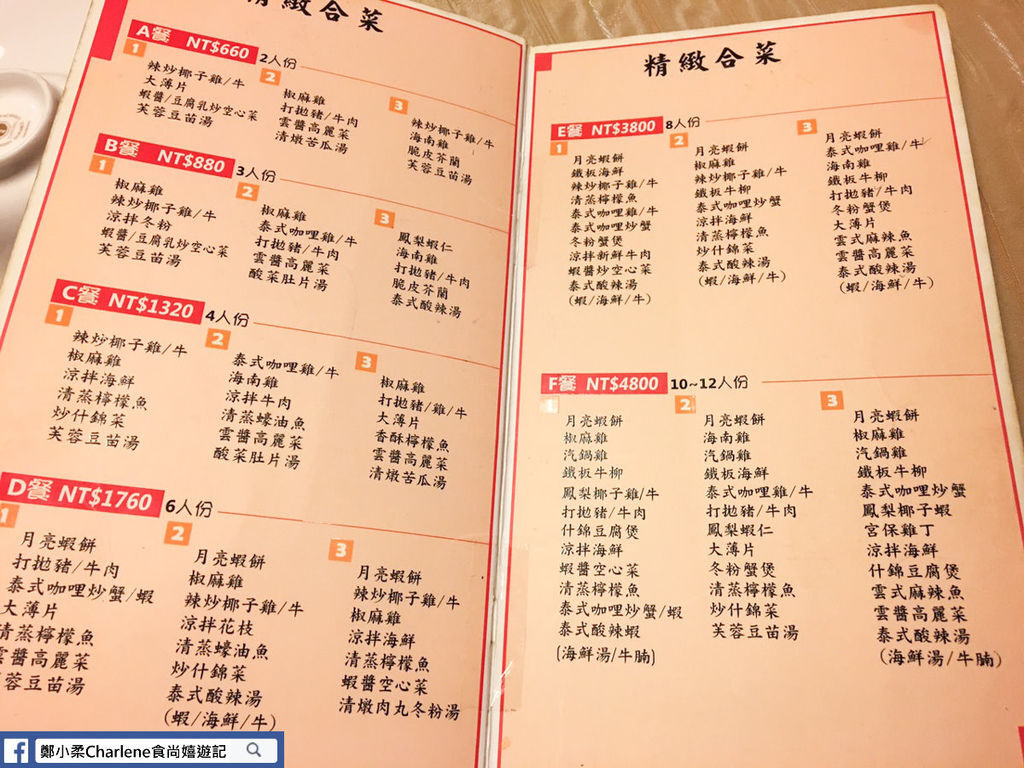 精緻合菜
A餐 NT$660 2人份
1
辣炒椰子雞/牛
大薄片
蝦醬/豆腐乳炒空心菜
芙蓉豆苗湯
2
椒麻雞
打拋豬/牛肉
雲醬高麗菜
清燉苦瓜湯
3
辣炒椰子雞/牛
海南雞
脆皮芥蘭
芙蓉豆苗湯
B餐 NT$880 3人份
1
椒麻雞
辣炒椰子雞/牛
涼拌冬粉
蝦醬/豆腐乳炒空心菜
芙蓉豆苗湯
2
椒麻雞
泰式咖哩雞/牛
打拋豬/牛肉
雲醬高麗菜
酸菜肚片湯
3
鳳梨蝦仁
海南雞
打拋豬/牛肉
脆皮芥蘭
泰式酸辣湯
C餐 NT$1320 4人份
1
辣炒椰子雞/牛
椒麻雞
涼拌海鮮
清蒸檸檬魚
炒什錦菜
芙蓉豆苗湯
2
泰式咖哩雞/牛
海南雞
涼拌牛肉
清蒸蠔油魚
雲醬高麗菜
酸菜肚片湯
3
椒麻雞
打拋豬/雞/牛
大薄片
香酥檸檬魚
雲醬高麗菜
清燉苦瓜湯
D餐 NT$1760 6人份
1
月亮蝦餅
打拋豬/牛肉
泰式咖哩炒蟹/蝦
大薄片
清蒸檸檬魚
雲醬高麗菜
蓉豆苗湯
2
月亮蝦餅
椒麻雞
辣炒椰子雞/牛
涼拌花枝
清蒸蠔油魚
炒什錦菜
泰式酸辣湯
(蝦/海鮮/牛)
3
月亮蝦餅
辣炒椰子雞/牛
椒麻雞
涼拌海鮮
清蒸檸檬魚
蝦醬空心菜
清燉肉丸冬粉湯
精緻合菜
E餐 NT$3800 8人份
1
月亮蝦餅
鐵板海鮮
辣炒椰子雞/牛
清蒸檸檬魚
泰式咖哩雞/牛
泰式咖哩炒蟹
冬粉蟹煲
涼拌新鮮牛肉
蝦醬炒空心菜
泰式酸辣湯
(蝦/海鮮/牛)
2
月亮蝦餅
椒麻雞
辣炒椰子雞/牛
鐵板牛柳
泰式咖哩炒蟹
涼拌海鮮
清蒸檸檬魚
炒什錦菜
泰式酸辣湯
(蝦/海鮮/牛)
3
月亮蝦餅
泰式咖哩雞/牛
海南雞
鐵板牛柳
打拋豬/牛肉
冬粉蟹煲
大薄片
雲式麻辣魚
雲醬高麗菜
泰式酸辣湯
(蝦/海鮮/牛)
F餐 NT$4800 10~12人份
1
月亮蝦餅
椒麻雞
汽鍋雞
鐵板牛柳
鳳梨椰子雞/牛
打拋豬/牛肉
什錦豆腐煲
涼拌海鮮
蝦醬空心菜
清蒸檸檬魚
泰式咖哩炒蟹/蝦
泰式酸辣蝦
(海鮮湯/牛腩)
2
月亮蝦餅
海南雞
汽鍋雞
鐵板海鮮
泰式咖哩雞/牛
打拋豬/牛肉
鳳梨蝦仁
大薄片
冬粉蟹煲
清蒸檸檬魚
炒什錦菜
芙蓉豆苗湯
3
月亮蝦餅
椒麻雞
汽鍋雞
鐵板牛柳
泰式咖哩炒蟹
鳳梨椰子蝦
宮保雞丁
涼拌海鮮
什錦豆腐煲
雲式麻辣魚
雲醬高麗菜
泰式酸辣湯
(海鮮湯/牛腩)
鄭小柔Charlene食尚嬉遊記